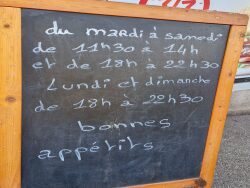 du mardi à samedi
de 11h30 à 14h
et de 18h à 22h30
Lundi et dimanche
de 18h à 22h30
bonnes
appétits